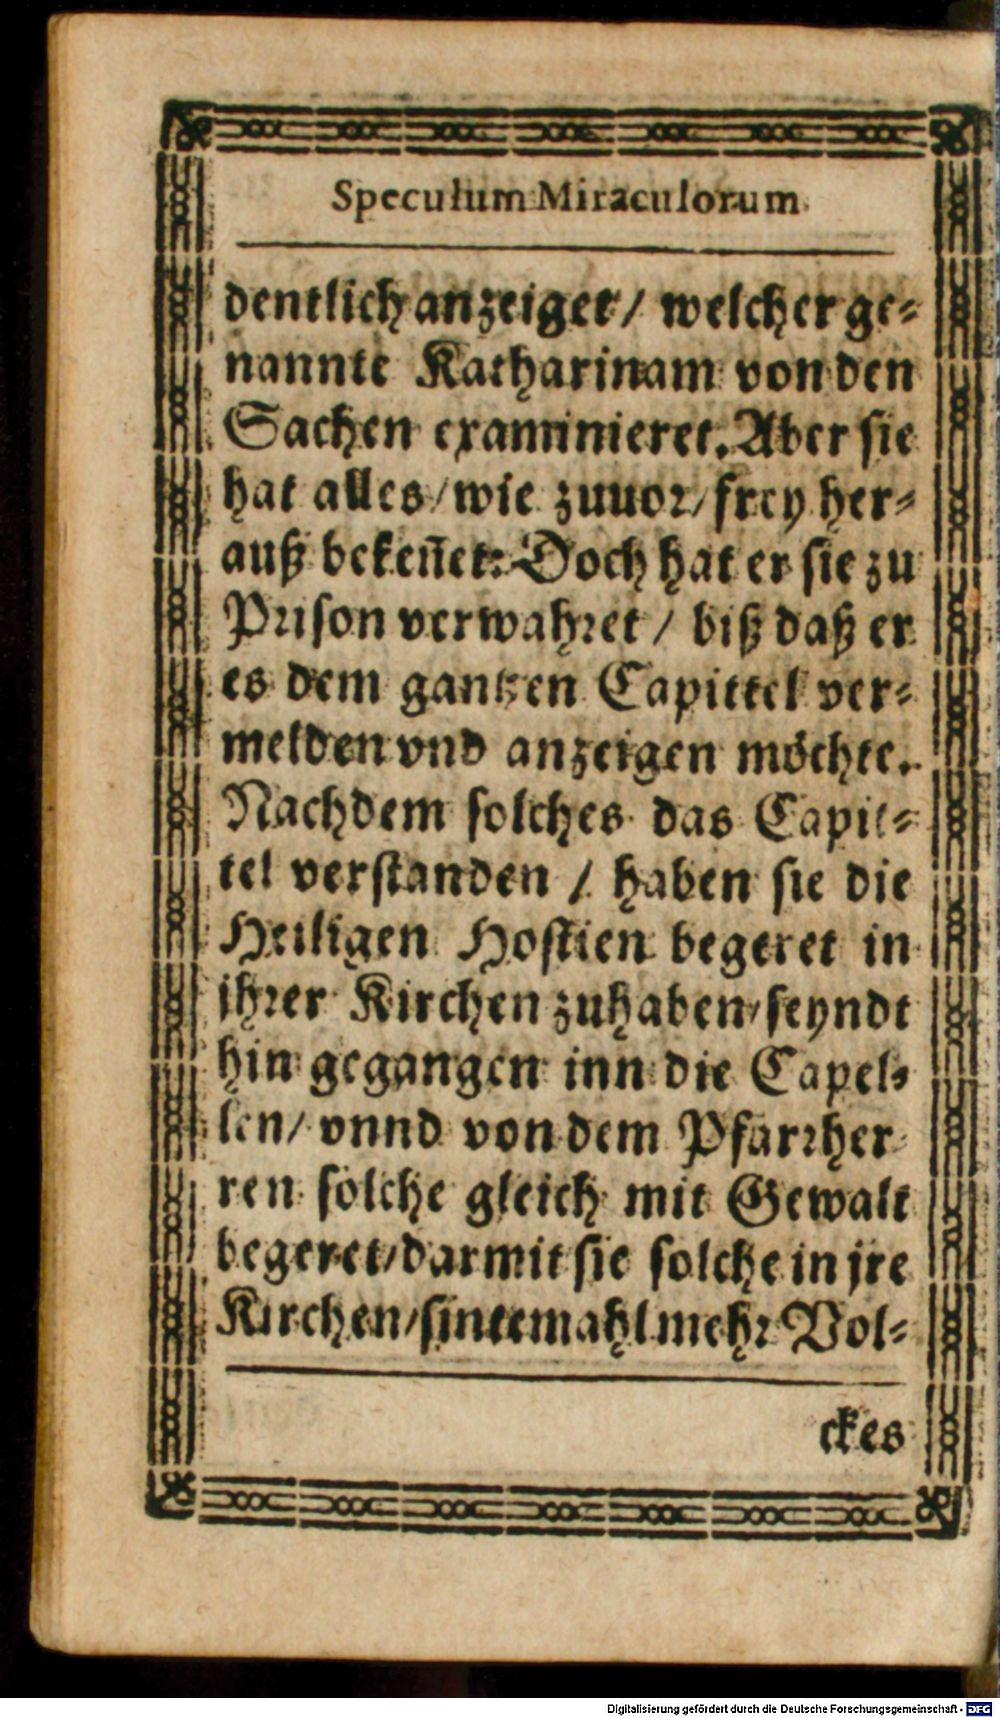 Speculum Miraculorum.
dentlich anzeiget / welcher ge-
nannte Katharinam von den
Sachen examinieret. Aber sie
hat alles / wie zuuor / frey her-
auß bekeñet: Doch hat er sie zu
Prison verwahret / biß daß er
es dem gantzen Capittel ver-
melden vnd anzeigen möchte.
Nachdem solches das Capit-
tel verstanden / haben sie die
Heiligen Hostien begeret in
ihrer Kirchen zuhaben / seyndt
hin gegangen inn die Capel-
len / vnnd von dem Pfarrher
ren solche gleich mit Gewalt
begeret / darmit sie solche in jre
Kirchen / sintemahl mehr Vol-
ckes
Digitalisierung gefördert durch die Deutsche Forschungsgemeinschaft - DFG